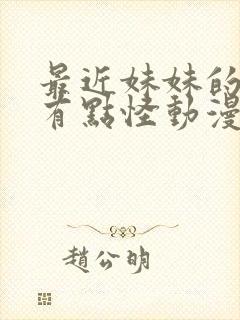 最近妹妹的
有點怪動漫
趙公明